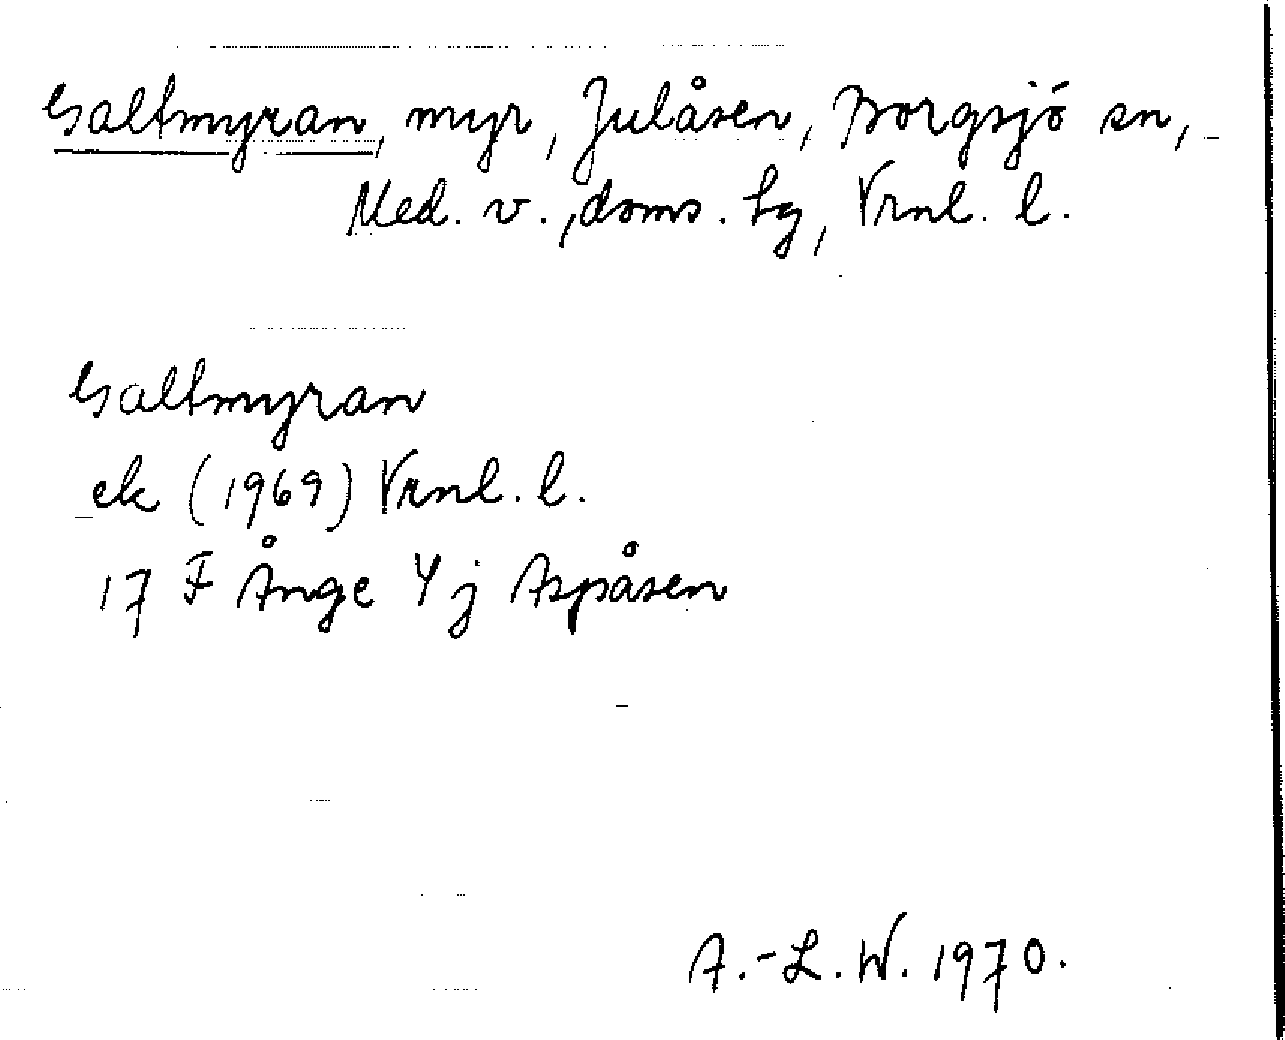 Galtmyran, myr, Julåsen, Borgsjö sn,
Med. v., doms. tg, Vrnl. l.
Galtmyran
ek (1969) Vrnl. l.
17 F Ånge 4 j Aspåsen
A.-L. W. 1970.